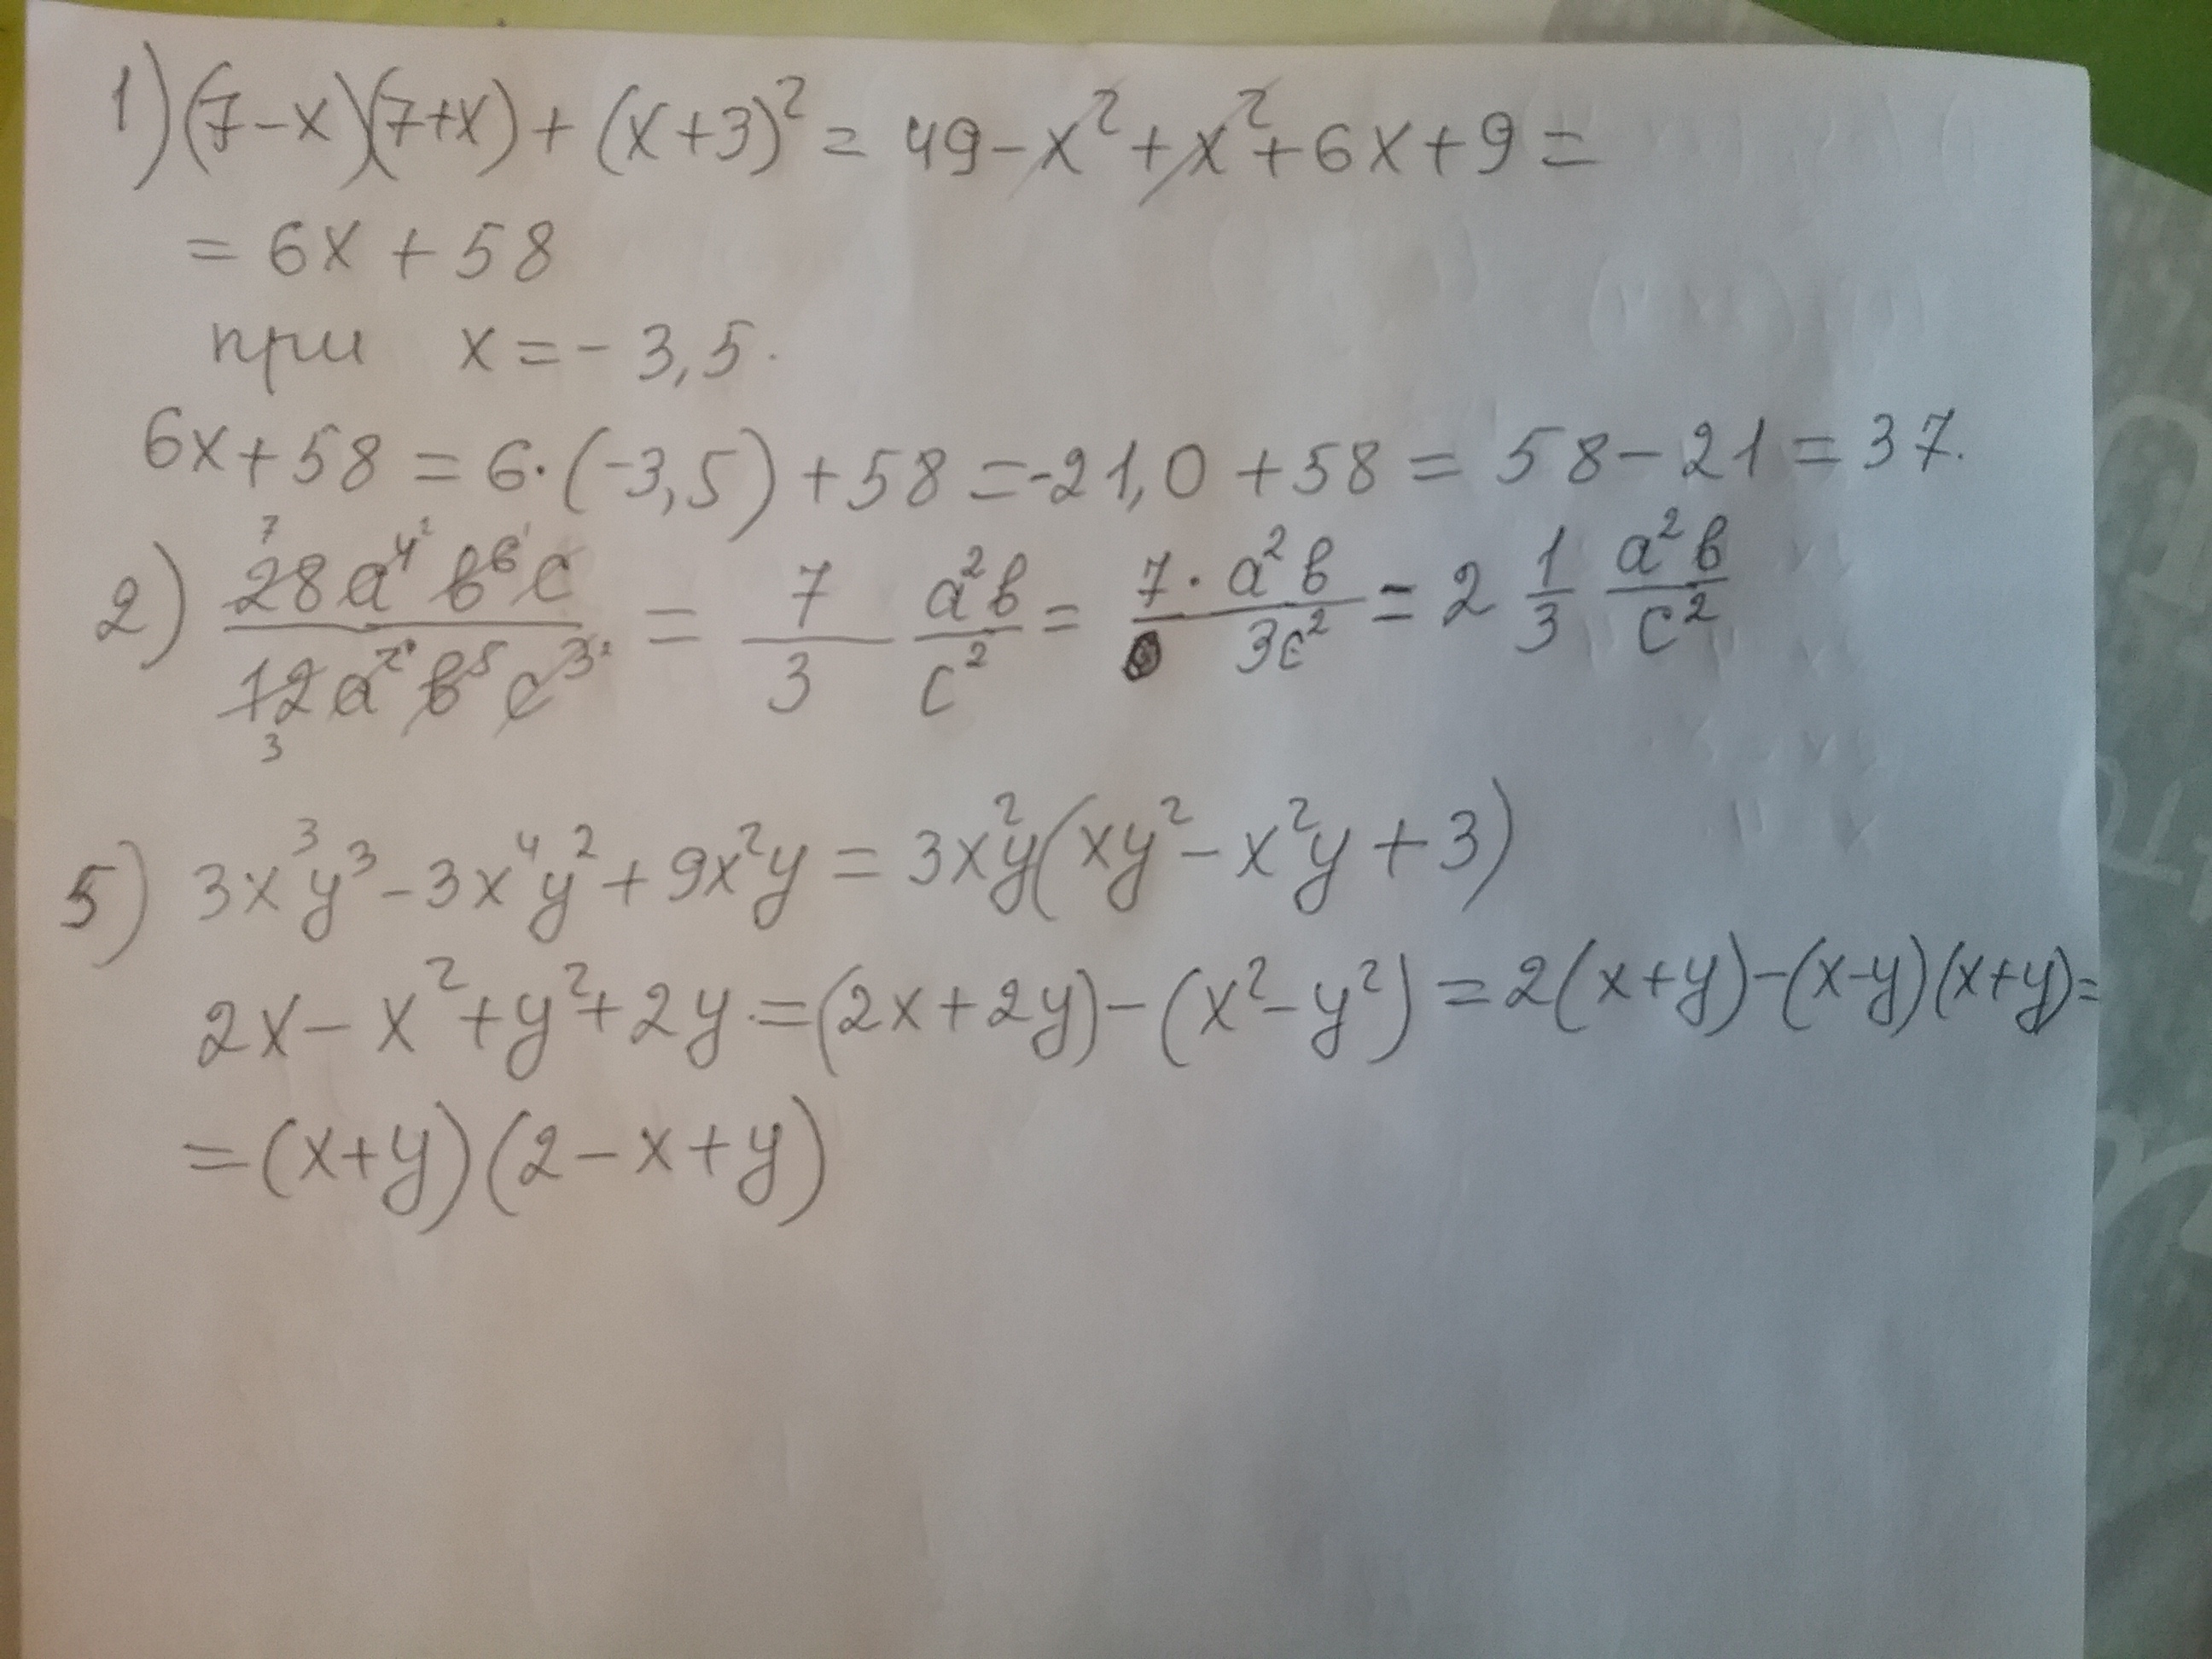 1) (7-x)(7+x) + (x+3)² = 49 - x² + x² + 6x + 9 =
= 6x + 58
при x = - 3,5.
6x + 58 = 6·(-3,5) + 58 = -21,0 + 58 = 58 - 21 = 37.
2) 28a⁴b⁶c / 12a²b⁵c³ = 7/3 a²b/c² = 7·a²b / 3c² = 2 1/3 a²b/c²
5) 3x³y³ - 3x⁴y² + 9x²y = 3x²y(xy² - x²y + 3)
2x - x² + y² + 2y = (2x + 2y) - (x² - y²) = 2(x+y) - (x-y)(x+y) =
= (x+y)(2 - x + y)